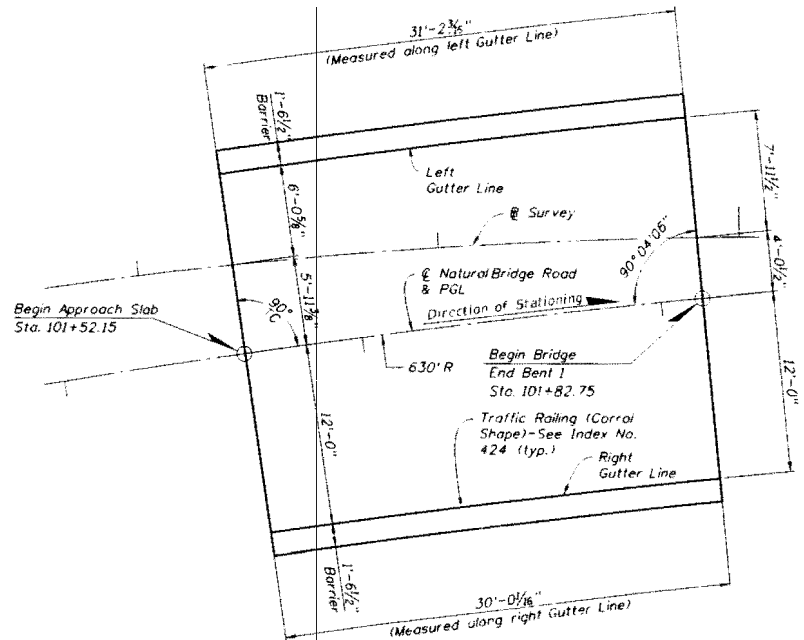 31'-2 3/16"
(Measured along left Gutter Line)
1'-6 1/2"
Barrier
Left
Gutter Line
6'-0 5/8"
7'-11 1/2"
℄ Survey
4'-0 1/2"
90° 04'06"
℄ Natural Bridge Road
& PGL
Direction of Stationing
5'-11 3/8"
90°
Begin Approach Slab
Sta. 101+52.15
630' R
Begin Bridge
End Bent 1
Sta. 101+82.75
12'-0"
12'-0"
Traffic Railing (Corral
Shape)-See Index No.
424 (typ.)
Right
Gutter Line
1'-6 1/2"
Barrier
30'-0 1/16"
(Measured along right Gutter Line)